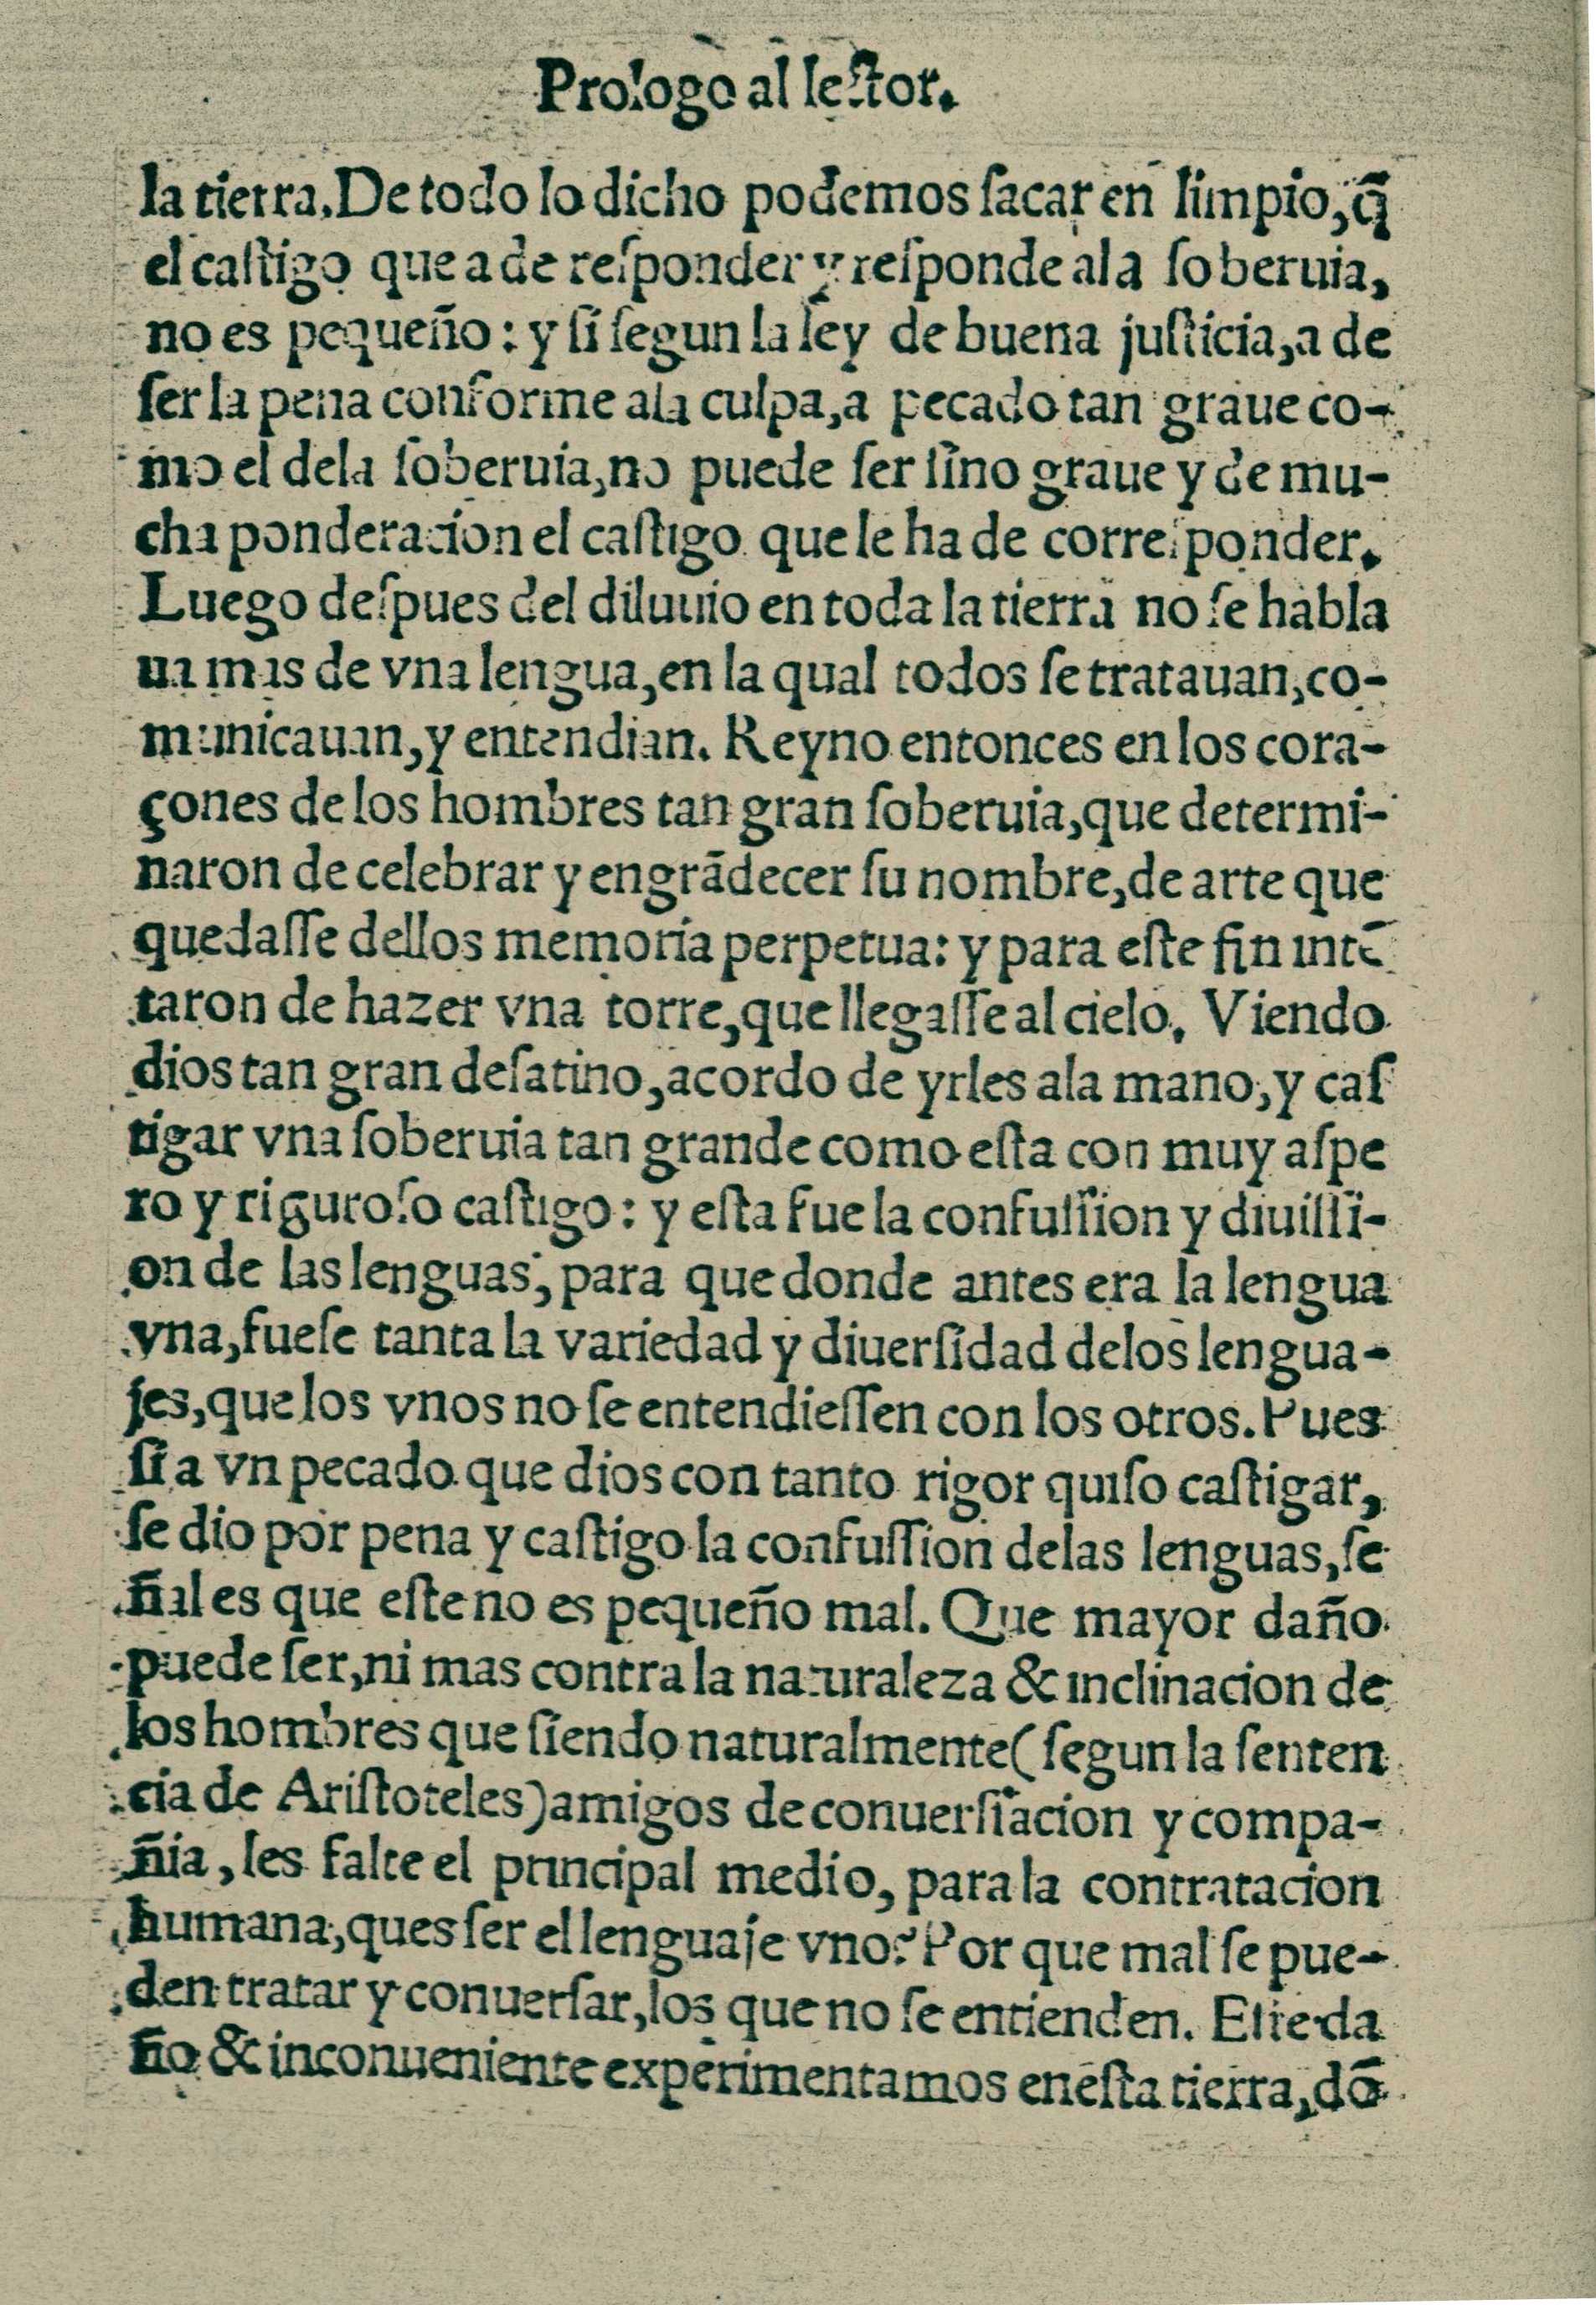 Prologo al lector.
la tierra. De todo lo dicho podemos ſacar en limpio, q̃
el caſtigo que a de reſponder y reſponde ala ſoberuia,
no es pequeño: y ſi ſegun la ley de buena juſticia, a de
ſer la pena conforme ala culpa, a pecado tan graue co-
mo el dela ſoberuia, no puede ſer ſino graue y de mu-
cha ponderacion el caſtigo que le ha de correſponder.
Luego deſpues del diluuio en toda la tierra no ſe habla
ua mas de vna lengua, en la qual todos ſe tratauan, co-
municauan, y entendian. Reyno entonces en los cora-
çones de los hombres tan gran ſoberuia, que determi-
naron de celebrar y engrãdecer ſu nombre, de arte que
quedaſſe dellos memoria perpetua: y para eſte fin intẽ
taron de hazer vna torre, que llegaſſe al cielo. Viendo
dios tan gran deſatino, acordo de yrles ala mano, y caſ
tigar vna ſoberuia tan grande como eſta con muy aſpe
ro y riguroſo caſtigo: y eſta fue la confuſſion y diuiſſi-
on de las lenguas, para que donde antes era la lengua
vna, fueſe tanta la variedad y diuerſidad delos lengua-
jes, que los vnos no ſe entendieſſen con los otros. Pues
ſi a vn pecado que dios con tanto rigor quiſo caſtigar,
ſe dio por pena y caſtigo la confuſſion delas lenguas, ſe
ñal es que eſte no es pequeño mal. Que mayor daño
puede ſer, ni mas contra la naturaleza & inclinacion de
los hombres que ſiendo naturalmente (ſegun la ſenten
cia de Ariſtoteles) amigos de conuerſiacion y compa-
ñia, les falte el principal medio, para la contratacion
humana, ques ſer el lenguaje vno? Por que mal ſe pue-
den tratar y conuerſar, los que no ſe entienden. Eſte da
ño & inconueniente experimentamos eneſta tierra, dõ